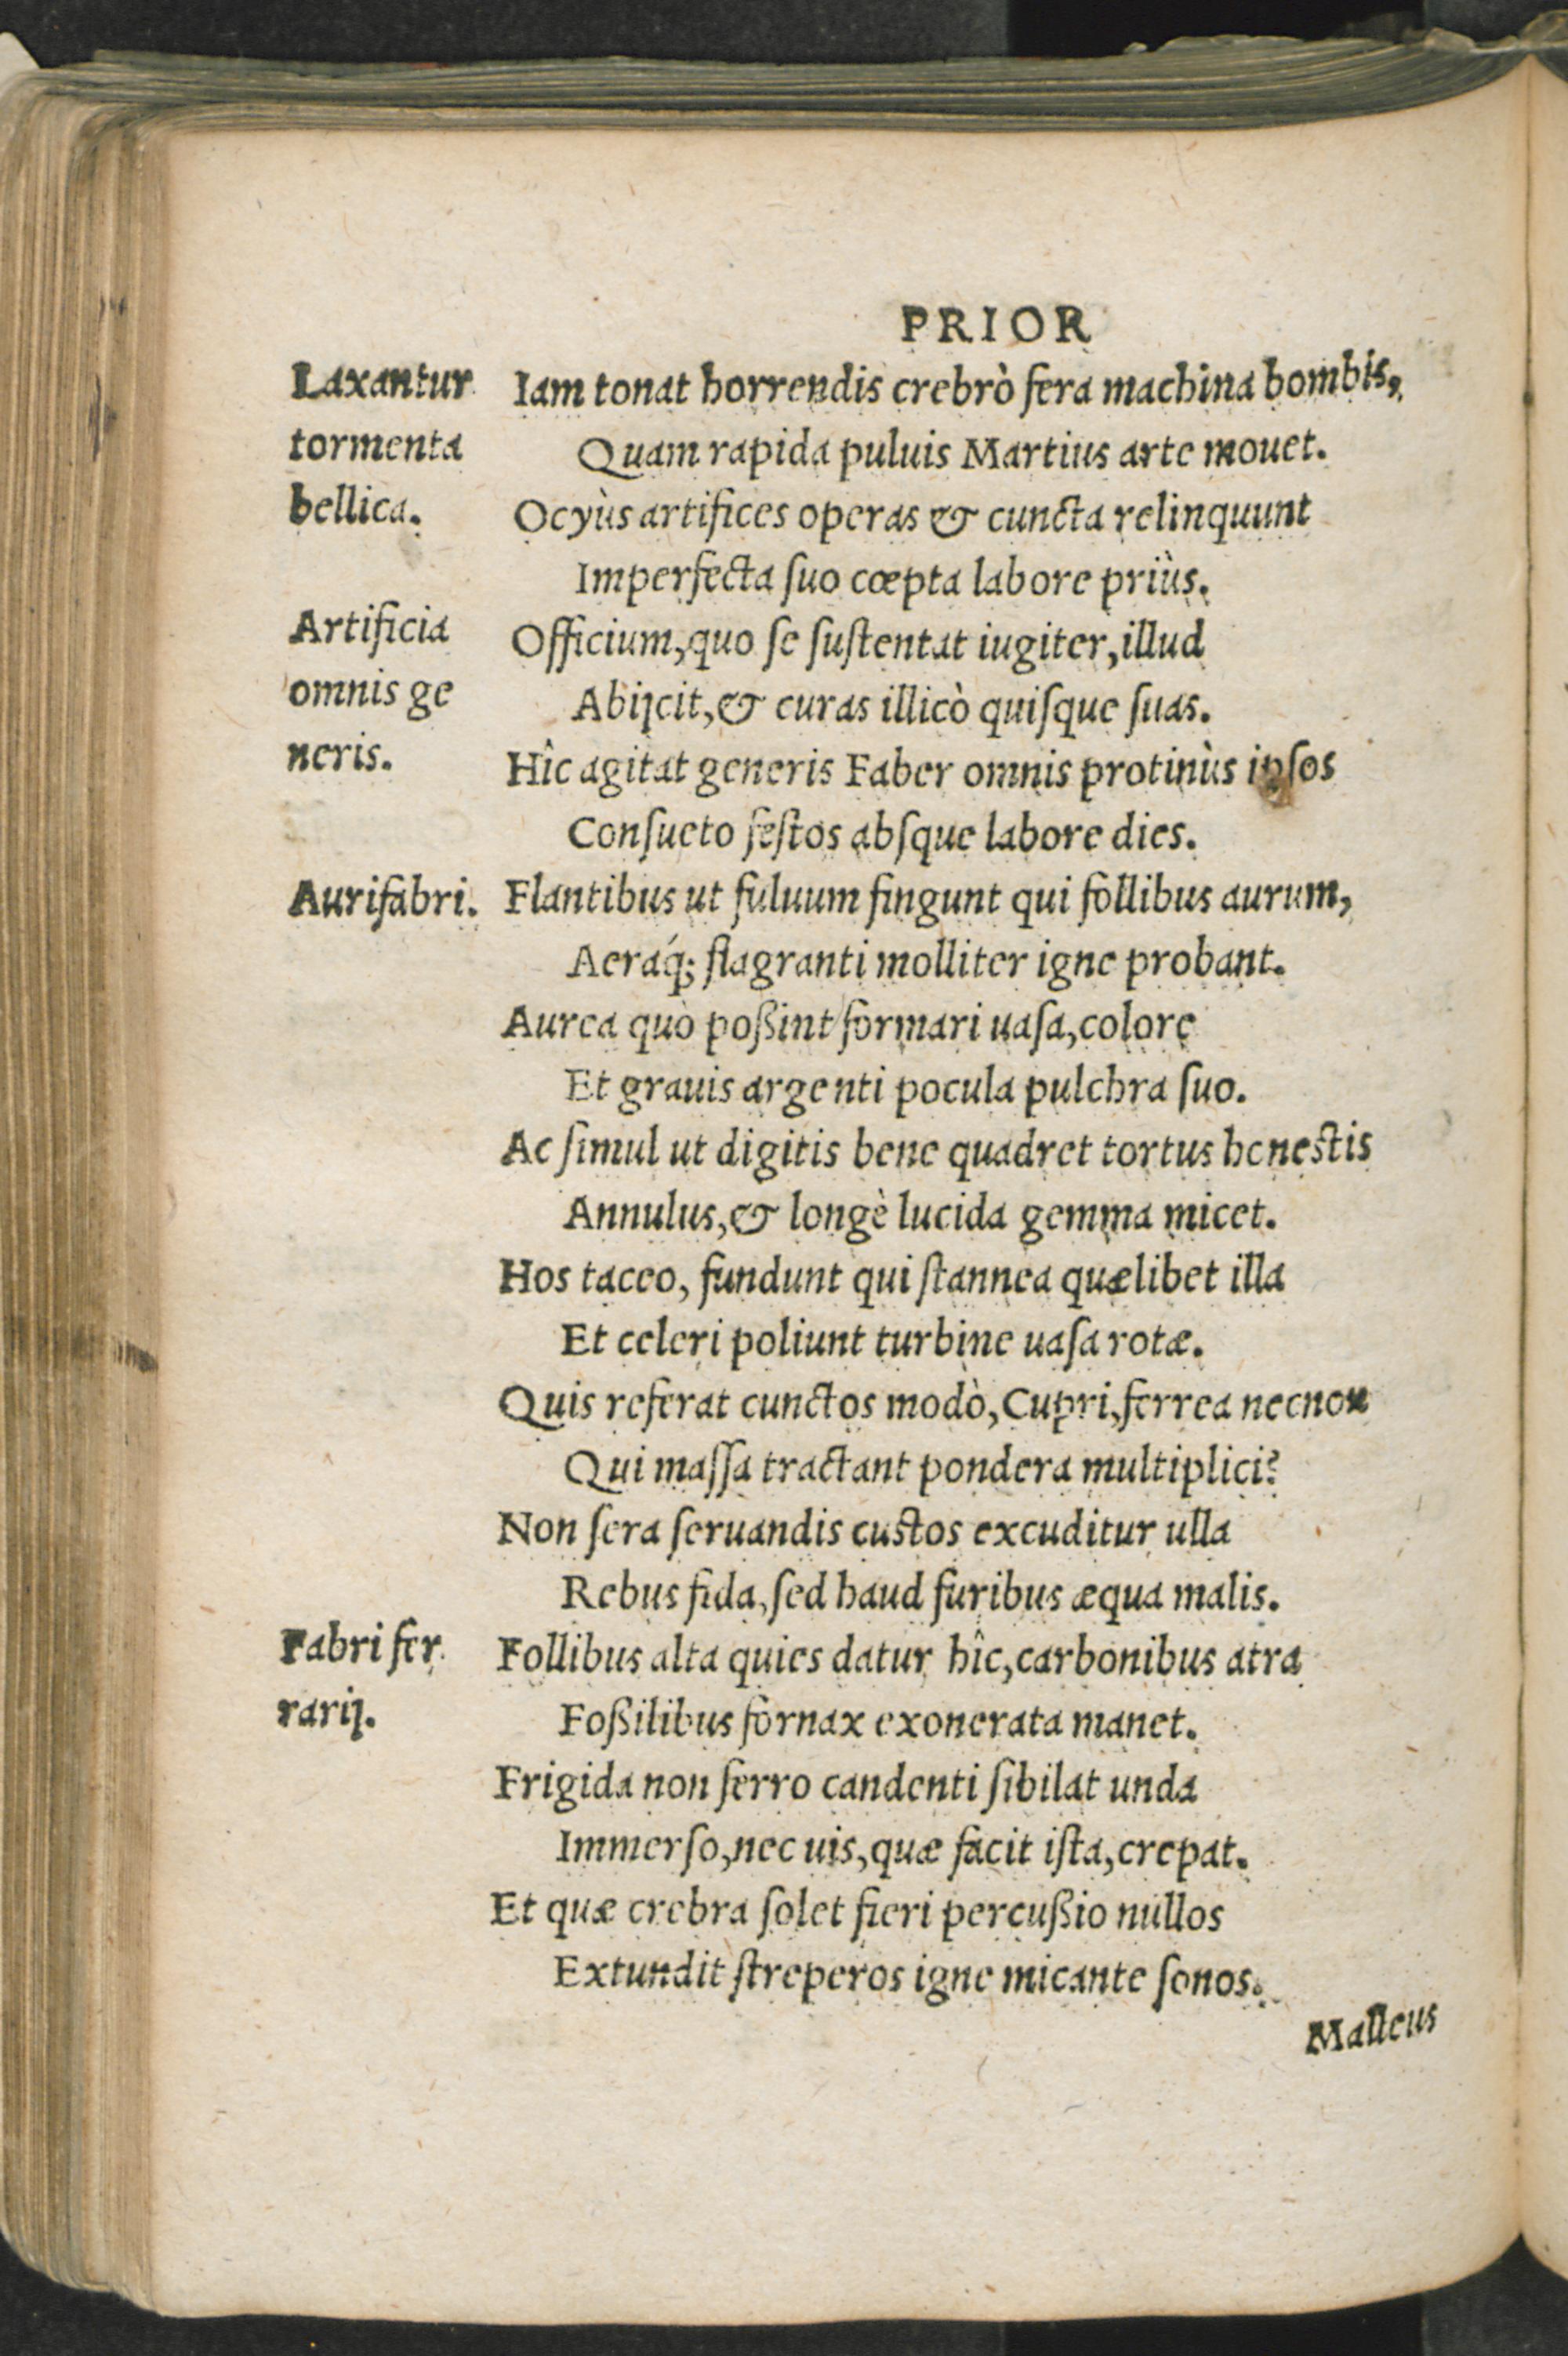 PRIOR
Laxantur
tormenta
bellica.
Iam tonat horrendis crebrò fera machina bombis,
Quam rapida puluis Martius arte mouet.
Ocyùs artifices operas & cuncta relinquunt
Imperfecta ſuo cœpta labore priùs.
Artificia
omnis ge
neris.
Officium, quo ſe ſuſtentat iugiter, illud
Abijcit, & curas illicò quiſque ſuas.
Hîc agitat generis Faber omnis protinùs ipſos
Conſueto feſtos abſque labore dies.
Aurifabri.
Flantibus ut fuluum fingunt qui follibus aurum,
Aeraq́; flagranti molliter igne probant.
Aurea quò poßint formari uaſa, colore
Et grauis argenti pocula pulchra ſuo.
Ac ſimul ut digitis bene quadret tortus honestis
Annulus, & longè lucida gemma micet.
Hos taceo, fundunt qui ſtannea quælibet illa
Et celeri poliunt turbine uaſa rotæ.
Quis referat cunctos modò, Cupri, ferrea necnon
Qui maſſa tractant pondera multiplici?
Non ſera ſeruandis custos excuditur ulla
Rebus fida, ſed haud furibus æqua malis.
Fabri fer
rarij.
Follibus alta quies datur hîc, carbonibus atra
Foßilibus fornax exonerata manet.
Frigida non ferro candenti ſibilat unda
Immerſo, nec uis, quæ facit iſta, crepat.
Et quæ crebra ſolet fieri percußio nullos
Extundit ſtreperos igne micante ſonos.
Malleus